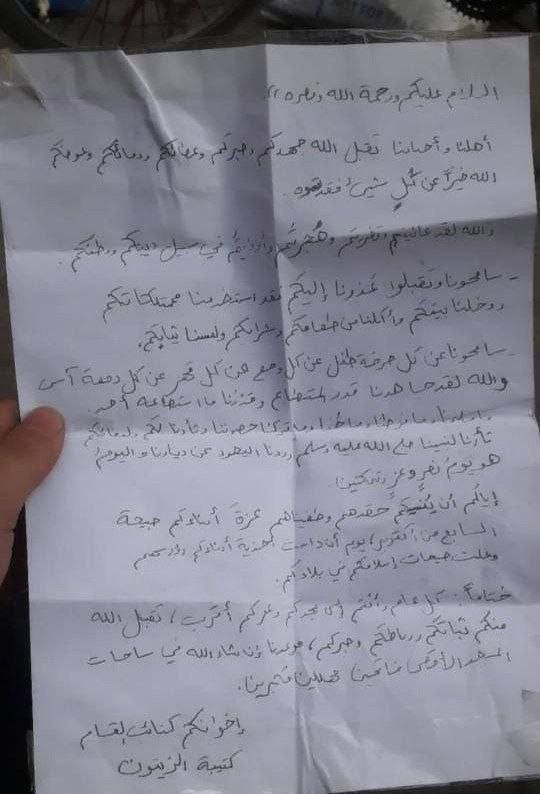 السلام عليكم ورحمة الله ونصره ،،
أهلنا وأحبابنا تقبل الله جهدكم وصبركم وعطائكم ودمائكم وعوضكم
الله خيراً عن كل شيئ فقدتموه.
والله لقد عانيتم وتغربتم وهُجرتُم وأوذيتم في سبيل دينكم ووطنكم.
- سامحونا وتقبلوا عذرنا إليكم فقد استخدمنا ممتلكاتكم
ودخلنا بيتكم وأكلنا من طعامكم وشرابكم ولبسنا ثيابكم.
- سامحونا عن كل صرخة طفل عن كل وجع عن كل قهر عن كل دمعة آسى
والله لقد جاهدنا قدر المستطاع وقدمنا ما استطاعه أحد.
ثأرنا لنبينا صلى الله عليه وسلم رددنا اليهود عن ديارنا واليوم
هو يوم نصر وعز وتمكين
إياكم أن يُنْسيكم حقدهم وطغيانهم عزة أبنائكم صبيحة
السابع من أكتوبر، يوم أن داست أحذية أبنائكم رؤوسهم
وعلت صيحات إسلامكم في بلادكم.
ختاماً: كل عام وأنتم إلى مجدكم وعزكم أقرب، تقبل الله
منكم ثباتكم ورباطكم وصبركم، موعدنا إن شاء الله في ساحات
المسجد الأقصى فاتحين مهللين مكبرين.
إخوانكم كتائب القسام
كتيبة الزيتون